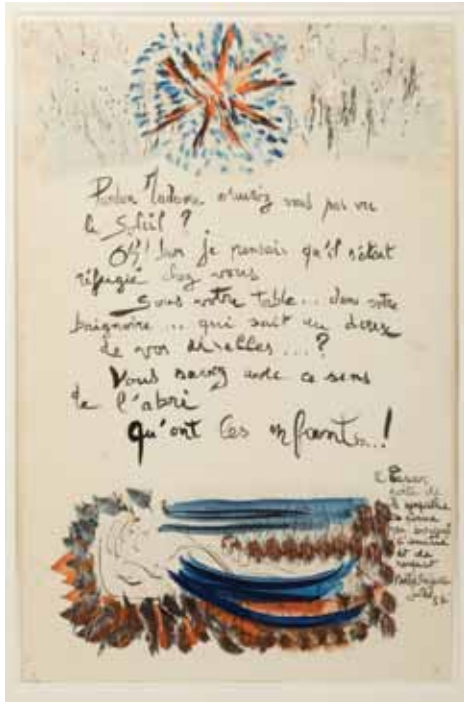 Pardon Madame n'auriez vous pas vu
le Soleil ?
je pensais qu'il s'était
réfugié chez vous
Sous votre table... dans votre
baignoire ... qui sait au creux
de vos aisselles ...?
Vous savez avec ce sens
de l'abri
qu'ont les enfants..!
de
la
et de
respect